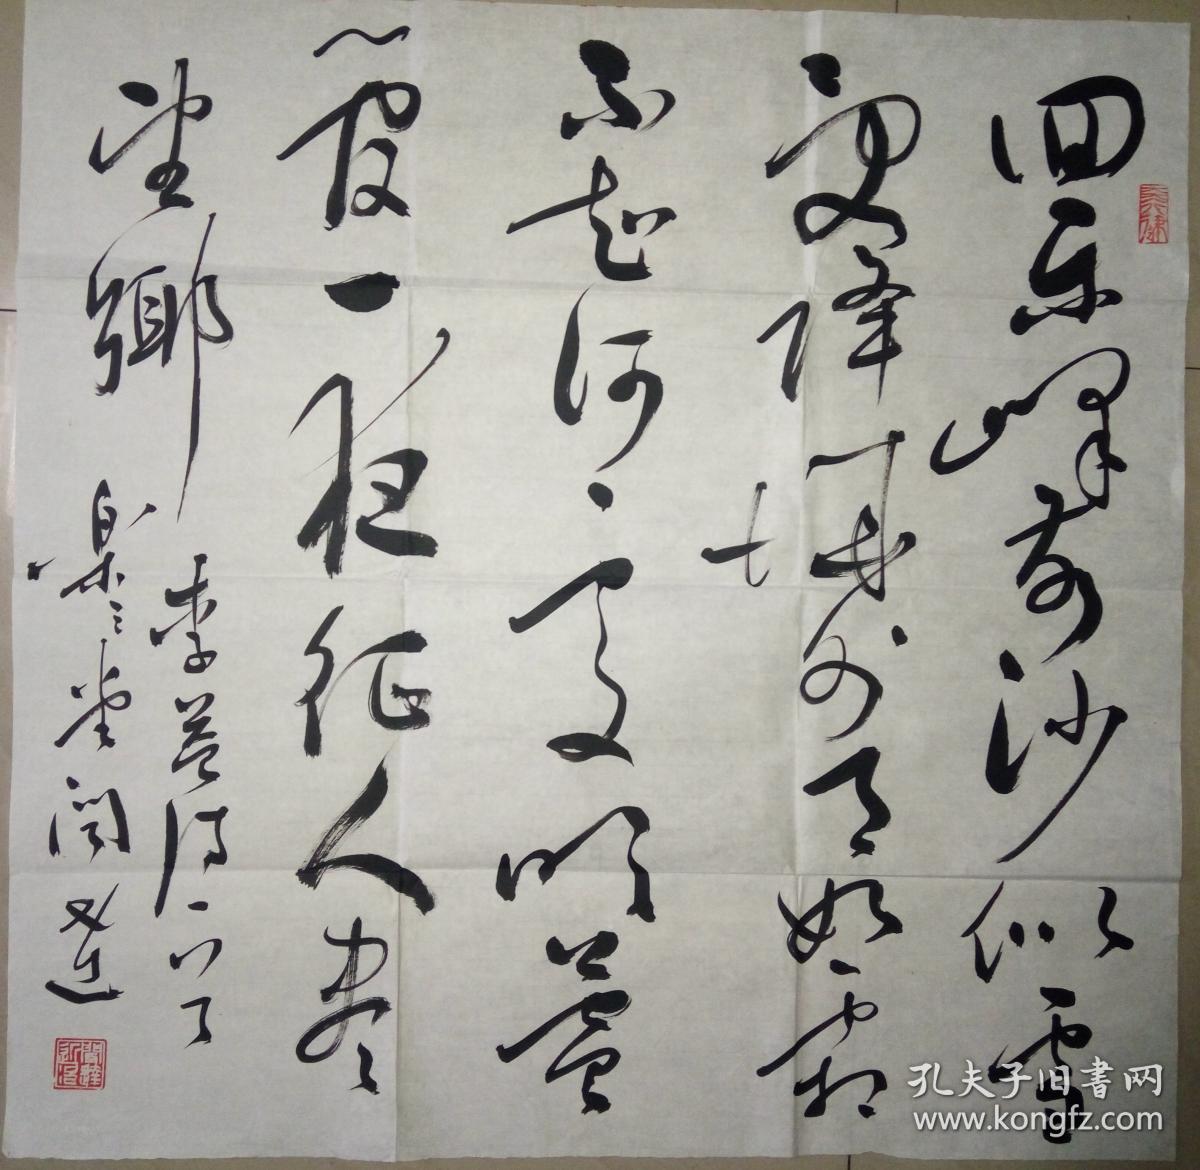 回乐峰前沙似雪
受降城外月如霜
不知何处吹芦
管一夜征人尽
望鄉
李益诗一首
樂堂
孔夫子旧書网
www.kongfz.com